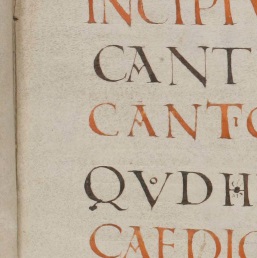 INCIPIV
CANT
CANTO
QVDH
CAEDIC